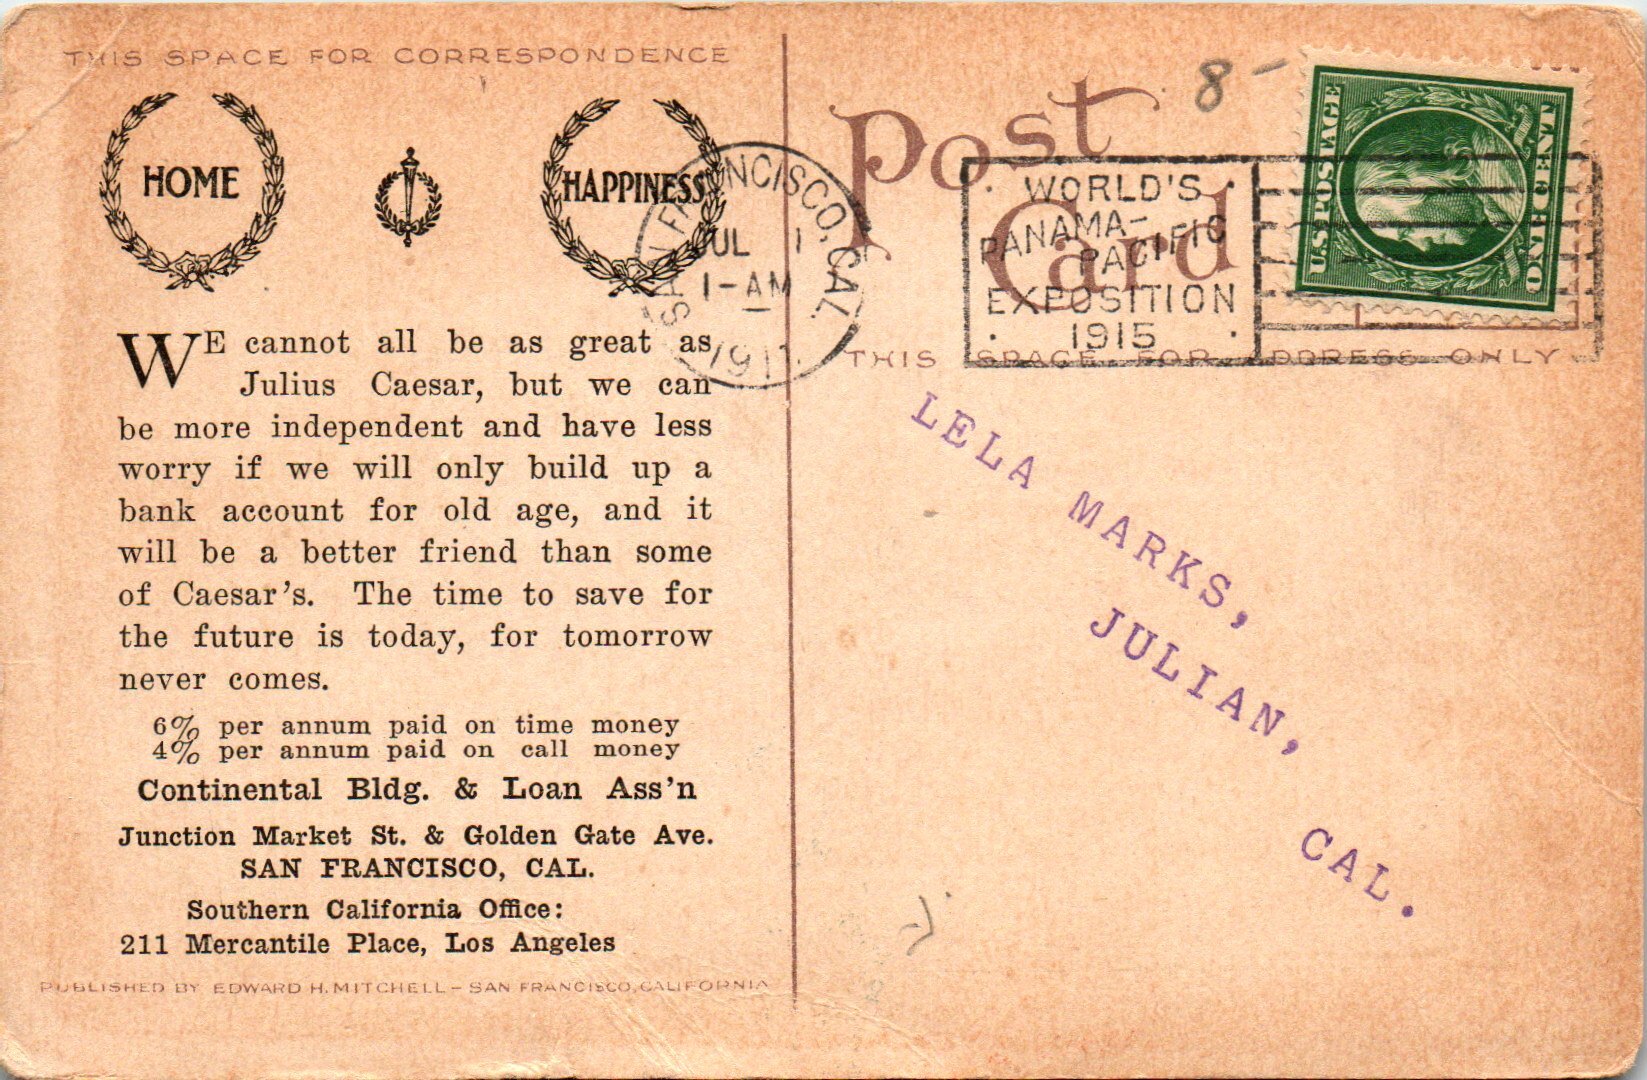 THIS SPACE FOR CORRESPONDENCE
HOME
HAPPINESS
WE cannot all be as great as
Julius Caesar, but we can
be more independent and have less
worry if we will only build up a
bank account for old age, and it
will be a better friend than some
of Caesar's. The time to save for
the future is today, for tomorrow
never comes.
6% per annum paid on time money
4% per annum paid on call money
Continental Bldg. & Loan Ass'n
Junction Market St. & Golden Gate Ave.
SAN FRANCISCO, CAL.
Southern California Office:
211 Mercantile Place, Los Angeles
PUBLISHED BY EDWARD H. MITCHELL – SAN FRANCISCO, CALIFORNIA
SAN FRANCISCO, CAL.
JUL 1
1-AM
1911
Post
Card
8-
WORLD'S
PANAMA-
PACIFIC
EXPOSITION
1915
U.S. POSTAGE
ONE CENT
THIS SPACE FOR ADDRESS ONLY
LELA MARKS,
JULIAN,
CAL.